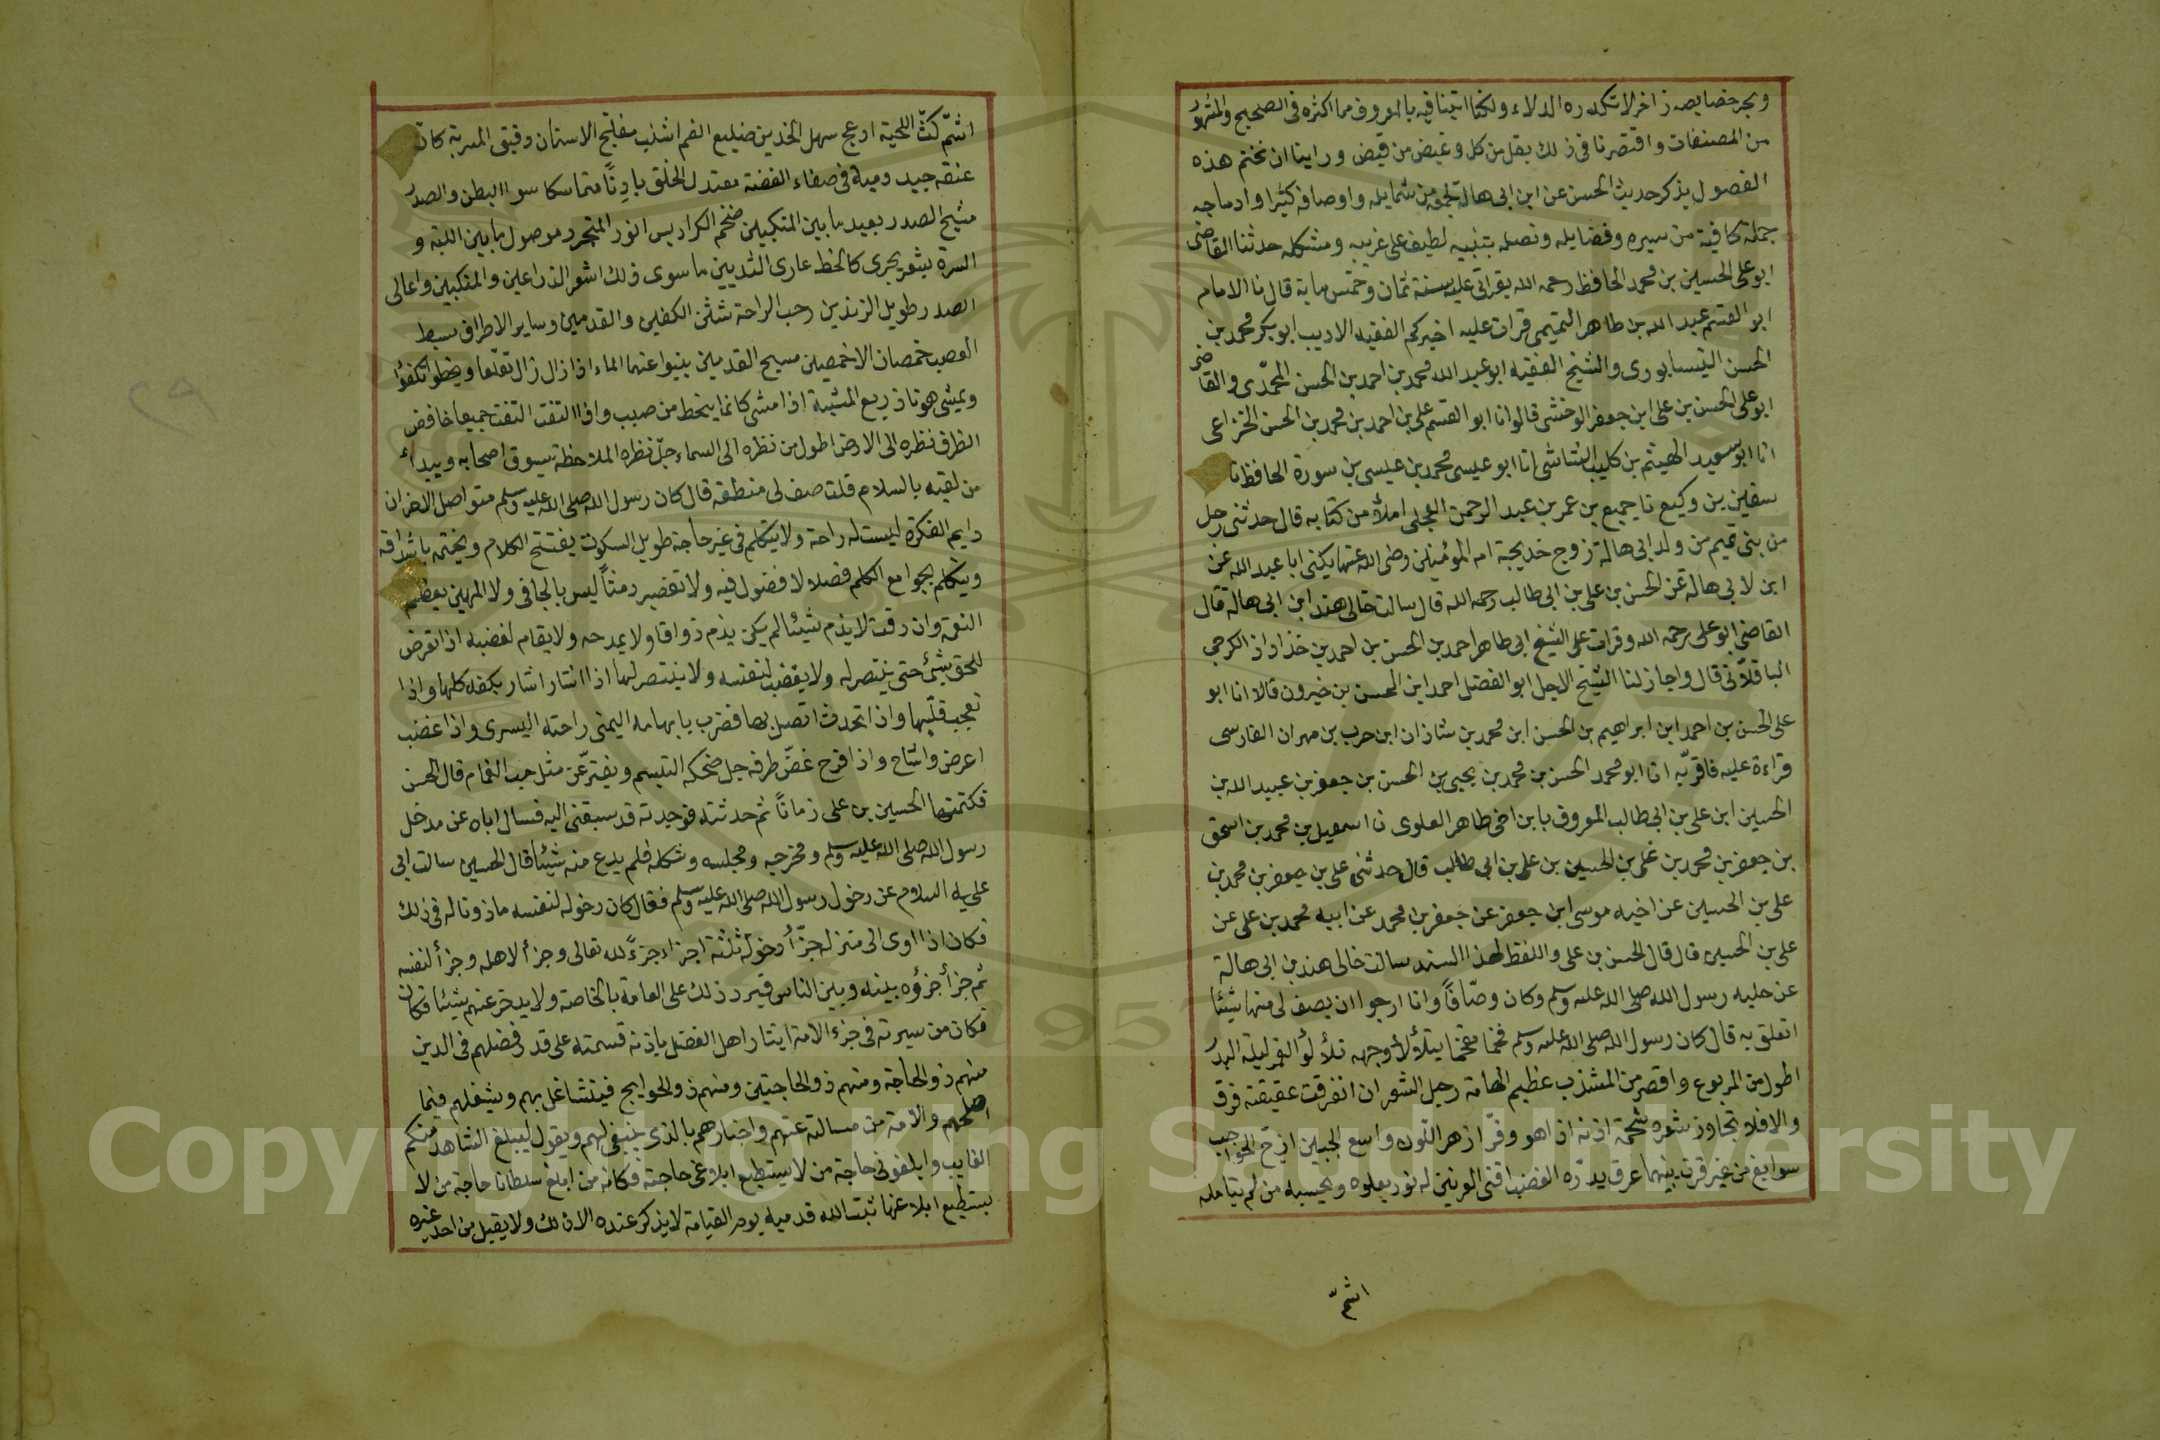 وبحر خصايصه زاخر لا تكدره الدلاء ولكنا اتينا فيه بالمعروف مما اكثره في الصحيح والمشهور
من المصنفات واقتصرنا في ذلك بقل من كل وغيض من فيض وراينا ان نختم هذه
الفصول بذكر حديث الحسن عن ابن ابي هالة لجمعه من شمايله واوصافه كثيرا وادماجه
جملة كافية من سيره وفضايله ونصله بتنبيه لطيف على غريبه ومشكله حدثنا القاضي
ابو علي الحسين بن محمد الحافظ رحمه الله بقراتي عليه سنة ثمان وخمس ماية قال نا الامام
ابو القسم عبد الله بن طاهر التميمي قرات عليه اخبركم الفقيه الاديب ابو بكر محمد بن
الحسن النيسابوري والشيخ الفقيه ابو عبد الله محمد بن احمد بن الحسن المحمدي والقاضي
ابو علي الحسن بن علي ابن جعفر الوخشي قالوا نا ابو القسم علي بن احمد بن محمد بن الحسن الخزاعي
انا ابو سعيد الهيثم بن كليب الشاشي انا ابو عيسى محمد بن عيسى بن سورة الحافظ نا
سفين بن وكيع نا جميع بن عمر بن عبد الرحمن العجلي املاء من كتابه قال حدثني رجل
من بني تميم من ولد ابي هالة زوج خديجة ام المؤمنين رضي الله عنها يكنى ابا عبد الله عن
ابن لابي هالة عن الحسن بن علي بن ابي طالب رحمه الله قال سالت خالي هند ابن ابي هالة قال
القاضي ابو علي رحمه الله وقرات على الشيخ ابي طاهر احمد بن الحسن بن احمد بن خذاداذ الكرجي
الباقلاني قال واجاز لنا الشيخ الاجل ابو الفضل احمد ابن الحسن بن خيرون قالا انا ابو
علي الحسن بن احمد ابن ابراهيم بن الحسن ابن محمد بن شاذان ابن حرب بن مهران الفارسي
قراءة عليه فاقر به انا ابو محمد الحسن بن محمد بن يحيى بن الحسن بن جعفر بن عبيد الله بن
الحسين ابن علي بن ابي طالب المعروف بابن اخي طاهر العلوي نا اسمعيل بن محمد بن اسحق
بن جعفر بن محمد بن علي بن الحسين بن علي بن ابي طالب قال حدثني علي بن جعفر بن محمد بن
علي بن الحسين عن اخيه موسى ابن جعفر عن جعفر بن محمد عن ابيه محمد بن علي عن
علي بن الحسين قال قال الحسن بن علي واللفظ لهذا السند سالت خالي هند بن ابي هالة
عن حليه رسول الله صلى الله عليه وسلم وكان وصّافاً وانا ارجوا ان يصف لي منها شيئا
اتعلق به قال كان رسول الله صلى الله عليه وسلم فخما مفخما يتلألأ وجهه تلألؤ القمر ليلة البدر
اطول من المربوع واقصر من المشذب عظيم الهامة رجل الشعر ان انفرقت عقيقته فرق
والا فلا يتجاوز شعره شحمة اذنه اذا هو وفّر ازهر اللون واسع الجبين ازج الحواجب
سوابغ من غير قرن بينهما عرق يدره الغضب اقنى العرنين له نور يعلوه ويحسبه من لم يتامله
اشمّ
اشمّ كثّ اللحية ادعج سهل الخدين ضليع الفم اشنب مفلج الاسنان دقيق المسربة كان
عنقه جيد دمية في صفاء الفضة معتدل الخلق بادِناً متماسكا سوا البطن والصدر
مشيح الصدر بعيد ما بين المنكبين ضخم الكراديس انور المتجرد موصول ما بين اللبة و
السرة بشعر يجري كالخط عاري الثديين ما سوى ذلك اشعر الذراعين والمنكبين واعالي
الصدر طويل الزندين رحب الراحة شثن الكفين والقدمين وساير الاطراف سبط
العصب خمصان الاخمصين مسيح القدمين ينبوا عنهما الماء اذا زال زال تقلعا ويخطوا تكفؤا
ويمشي هونا ذريع المشية اذا مشى كانما ينحط من صبب واذا التفت التفت جميعا خافض
الطرف نظره الى الارض اطول من نظره الى السماء جلّ نظره الملاحظة يسوق اصحابه ويبدأ
من لقيه بالسلام قلت صف لي منطقه قال كان رسول الله صلى الله عليه وسلم متواصل الاحزان
دايم الفكرة ليست له راحة ولا يتكلم في غير حاجة طويل السكوت يفتتح الكلام ويختمه باشداقه
ويتكلم بجوامع الكلم فصلا لا فضول فيه ولا تقصير دمثاً ليس بالجافي ولا المهين يعظم
النعمة وان دقت لا يذم شيئا لم يكن يذم ذواقا ولا يمدحه ولا يقام لغضبه اذا تعرض
للحق بشئ حتى ينتصر له ولا يغضب لنفسه ولا ينتصر لها اذا اشار اشار بكفه كلها واذا
تعجب قلّبها واذا تحدث اتصل بها فضرب بابهامه اليمنى راحته اليسرى واذا غضب
اعرض واشاح واذا فرح غضّ طرفه جل ضحكه التبسم ويفترّ عن مثل حب الغمام قال الحسن
فكتمتها الحسين بن علي زماناً ثم حدثته فوجدته قد سبقني اليه فسال اباه عن مدخل
رسول الله صلى الله عليه وسلم ومخرجه ومجلسه وشكله فلم يدع منه شيئا قال الحسين سالت ابي
عليه السلام عن دخول رسول الله صلى الله عليه وسلم فقال كان دخوله لنفسه ماذونا له في ذلك
فكان اذا اوى الى منزله جزّأ دخوله ثلثة اجزاء جزءً لله تعالى وجزأ لاهله وجزأ لنفسه
ثم جزأ جزؤه بينه وبين الناس فيرد ذلك على العامة بالخاصة ولا يدخر عنهم شيئا فكان
فكان من سيرته في جزء الامة ايثار اهل الفضل باذنه قسمته على قدر فضلهم في الدين
منهم ذو الحاجة ومنهم ذو الحاجتين ومنهم ذو الحوايج فيتشاغل بهم ويشغلهم فيما
اصلحهم والامة من مسالته عنهم واخبارهم بالذي ينبغي لهم ويقول ليبلغ الشاهد منكم
الغايب وابلغوني حاجة من لا يستطيع ابلاغي حاجته فكانه من ابلغ سلطانا حاجة من لا
يستطيع ابلاغها ثبت الله قدميه يوم القيامة لا يذكر عنده الا ذلك ولا يقبل من احد غيره
٢٩
Copyright © King Saud University
1957